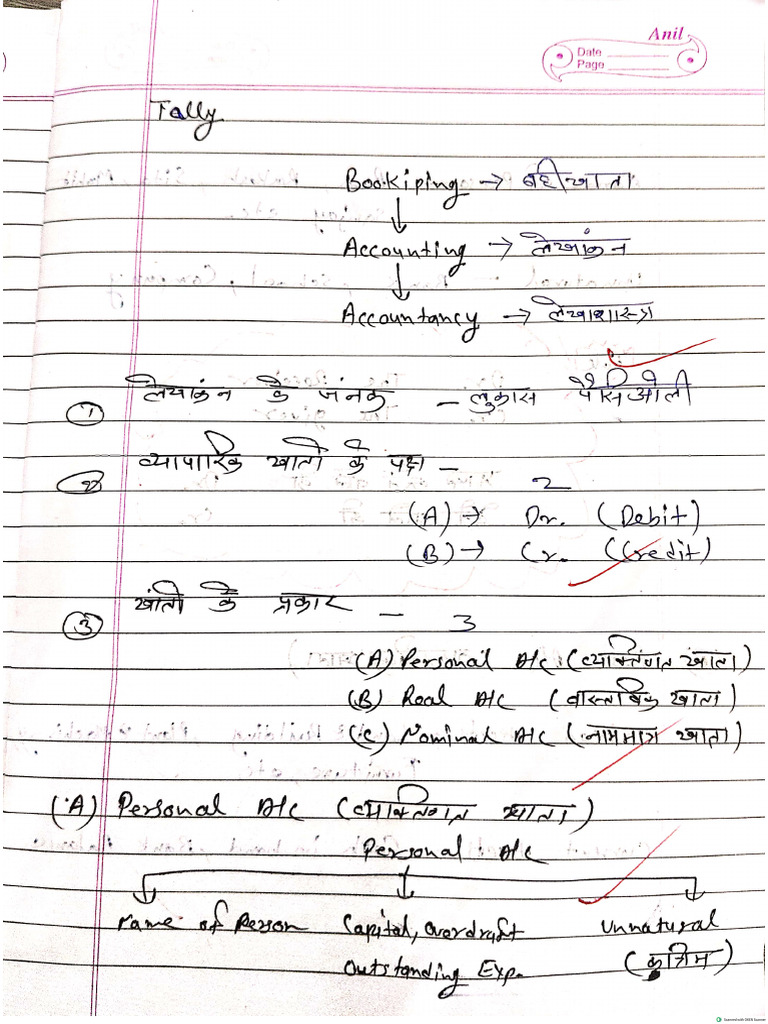 Anil
Date
Page
Tally
Bookiping → बहीखाता
Accounting → लेखांकन
Accountancy → लेखाशास्त्र
① लेखांकन के जंनक - लुकास पेसिओली
② व्यापारिक खातो के पक्ष - 2
(A) → Dr. (Debit)
(B) → Cr. (Credit)
③ खांतो के प्रकार - 3
(A) Personal A/c (व्यक्तिगत खाता)
(B) Real A/c (वास्तविक खाता)
(C) Nominal A/c (नाममात्र खाता)
(A) Personal A/c (व्यक्तिगत खाता)
Personal A/c
Name of Person Capital, Overdraft Unnatural
Outstanding Exp. (कृत्रिम)
Scanned with OKEN Scanner